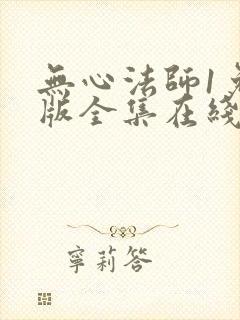 無心法師1
版全集在綫
寧莉答